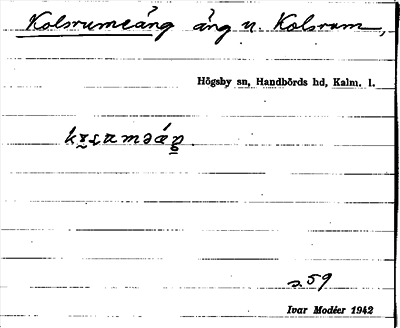 Kolsrumeäng äng u. Kolsrum,
Högsby sn, Handbörds hd, Kalm. l.
s. 59
Ivar Modéer 1942